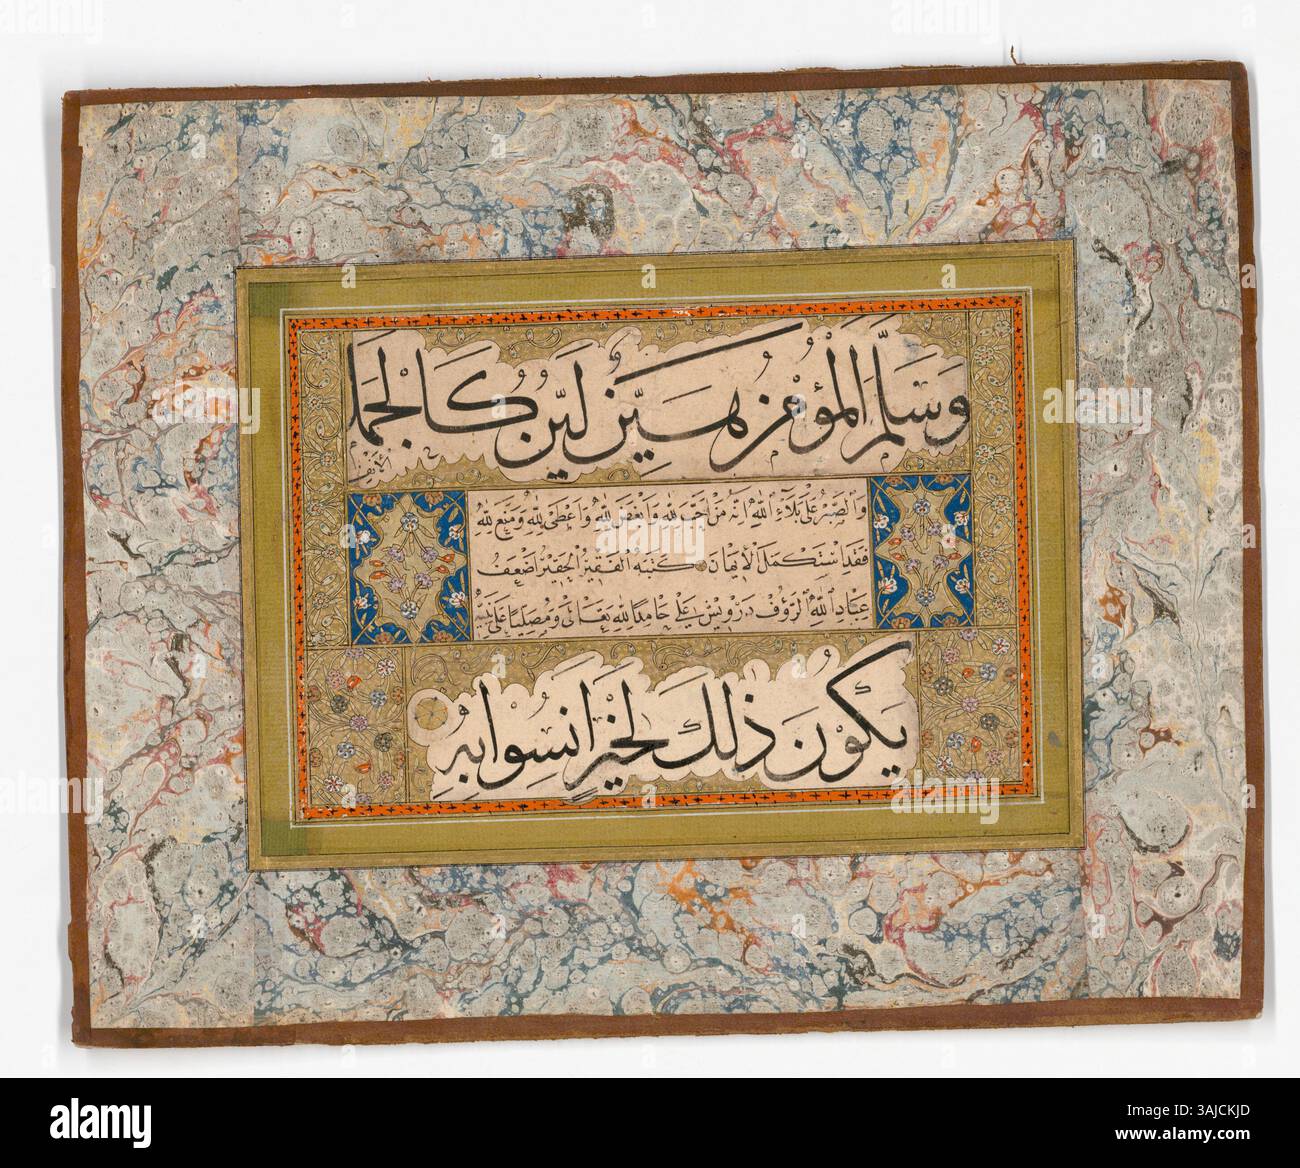 وَسَلَّمَ الْمُؤْمِنُ هَيِّنٌ لَيِّنٌ كَالْجَمَلِ
الْأَنِفِ
وَالصَّبْرُ عَلَى بَلَاءِ اللهِ اِنَّهُ مَنْ اَحَبَّ لِلهِ وَاَبْغَضَ لِلهِ وَاَعْطَى لِلهِ وَمَنَعَ لِلهِ
فَقَدِ اسْتَكْمَلَ الْاِيمَانَ كَتَبَهُ الْفَقِيرُ الْحَقِيرُ اَضْعَفُ
عِبَادِ اللهِ الرَّؤُفِ دَرْوِيش عَلِي حَامِدًا لِلهِ تَعَالَى وَمُصَلِّيًا عَلَى نَبِيِّهِ
يَكُونُ ذَلِكَ لِخَيْرٍ اَنْسَوْا بِهِ
alamy
Image ID: 3AJCKJD
www.alamy.com